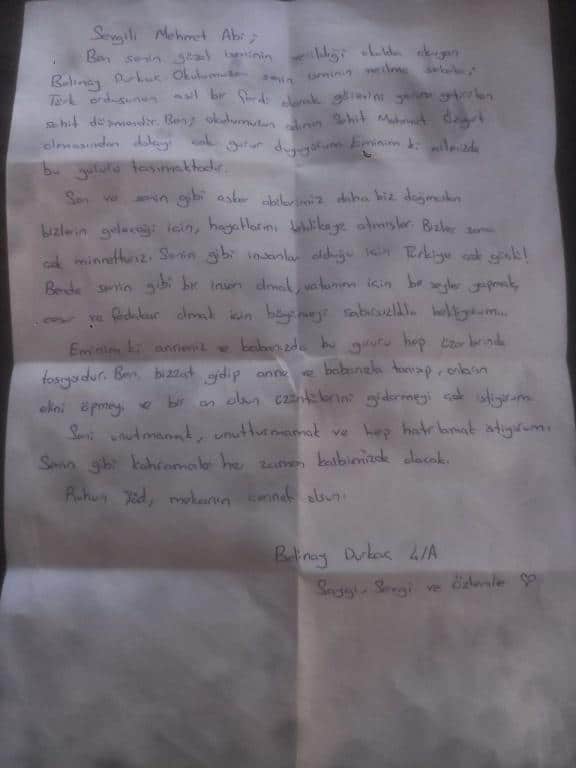 Sevgili Mehmet Abi;
Ben senin güzel isminin verildiği okulda okuyan
Belinay Durkac. Okulumuza senin isminin verilme sebebi;
Türk ordusunun asil bir ferdi olarak görevini yerine getirirken
şehit düşmendir. Ben, okulumuzun adının Şehit Mehmet
olmasından dolayı çok gurur duyuyorum. Eminim ki ailenizde
bu gururu taşımaktadır.
Sen ve senin gibi asker abilerimiz daha biz doğmadan
bizlerin geleceği için, hayatlarını tehlikeye atmışlar. Bizler sana
çok minnettarız. Senin gibi insanlar olduğu için Türkiye çok güçlü!
Bende senin gibi bir insan olmak, vatanım için bir şeyler yapmak,
cesur ve fedakar olmak için büyümeyi sabırsızlıkla bekliyorum...
Eminim ki anneniz ve babanızda bu gururu hep üzerlerinde
taşıyordur. Ben, bizzat gidip anne ve babanızla tanışıp, onların
elini öpmeyi ve bir an olsun üzüntülerini gidermeyi çok istiyorum.
Seni unutmamak, unutturmamak ve hep hatırlamak istiyorum.
Senin gibi kahramanlar her zaman kalbimizde olacak.
Ruhun şâd, mekanın cennet olsun.
Belinay Durkac 4/A
Saygı, Sevgi ve özlemle ♡